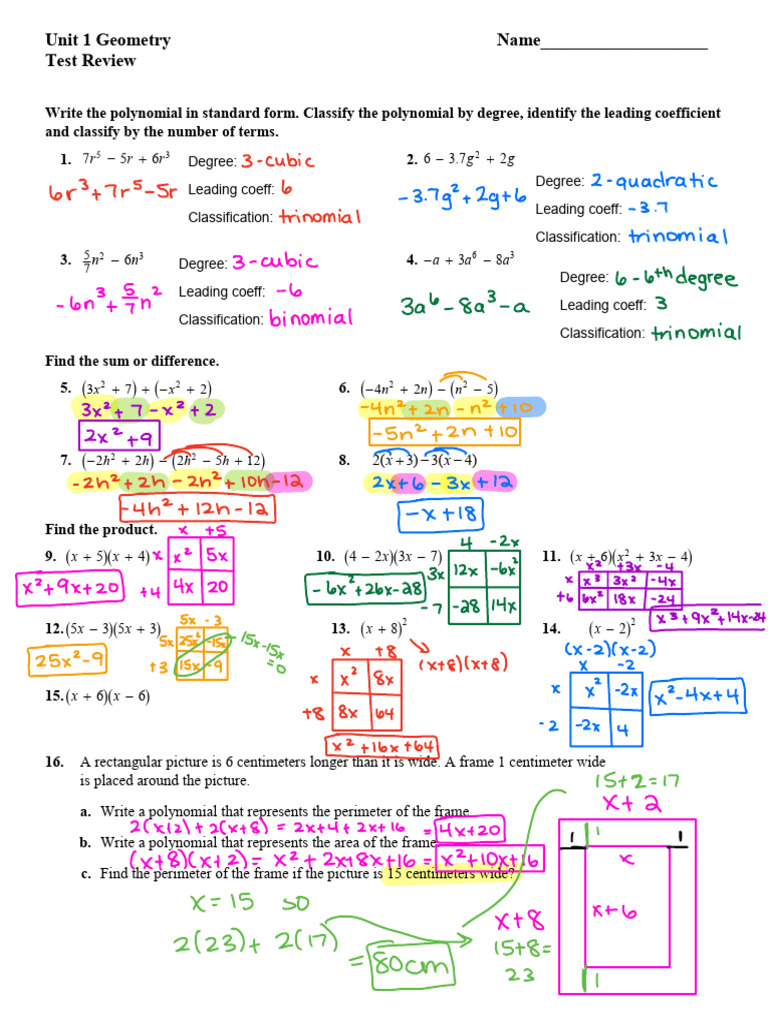 Unit 1 Geometry Name___________________
Test Review
Write the polynomial in standard form. Classify the polynomial by degree, identify the leading coefficient
and classify by the number of terms.
1. 7r⁵ − 5r + 6r³ Degree: 3-cubic
6r³+7r⁵-5r Leading coeff: 6
Classification: trinomial
2. 6 − 3.7g² + 2g
Degree: 2-quadratic
-3.7g²+2g+6 Leading coeff: -3.7
Classification: trinomial
3. 5/7n² − 6n³ Degree: 3-cubic
-6n³+5/7n² Leading coeff: -6
Classification: binomial
4. −a + 3a⁶ − 8a³
Degree: 6-6th degree
3a⁶-8a³-a Leading coeff: 3
Classification: trinomial
Find the sum or difference.
5. (3x² + 7) + (−x² + 2)
3x²+7-x²+2
2x²+9
6. (−4n² + 2n) − (n² − 5)
-4n²+2n-n²+10
-5n²+2n+10
7. (−2h² + 2h) − (2h² − 5h + 12)
-2h²+2h-2h²+10h-12
-4h²+12h-12
8. 2(x+3)−3(x−4)
2x+6-3x+12
-x+18
Find the product.
x +5
9. (x + 5)(x + 4) x x² 5x
x²+9x+20 +4 4x 20
4 -2x
10. (4 − 2x)(3x − 7) 3x 12x -6x²
-6x²+26x-28 -7 -28 14x
11. (x + 6)(x² + 3x − 4)
x² +3x -4
x x³ 3x² -4x
+6 6x² 18x -24
x³+9x²+14x-24
5x -3
12. (5x − 3)(5x + 3) 5x 25x² -15x 15x-15x=0
25x²-9 +3 15x -9
13. (x + 8)²
(x+8)(x+8)
x +8
x x² 8x
+8 8x 64
x²+16x+64
14. (x − 2)²
(x-2)(x-2)
x -2
x x² -2x
-2 -2x 4
x²-4x+4
15. (x + 6)(x − 6)
16. A rectangular picture is 6 centimeters longer than it is wide. A frame 1 centimeter wide
is placed around the picture.
a. Write a polynomial that represents the perimeter of the frame.
2(x(2)+2(x+8) = 2x+4+2x+16 = 4x+20
b. Write a polynomial that represents the area of the frame.
(x+8)(x+2)= x²+2x+8x+16 = x²+10x+16
c. Find the perimeter of the frame if the picture is 15 centimeters wide?
x=15 so
2(23)+2(17)
= 80cm
15+2=17
x+2
1 1 1
x
x+6
x+8
15+8=
23
1